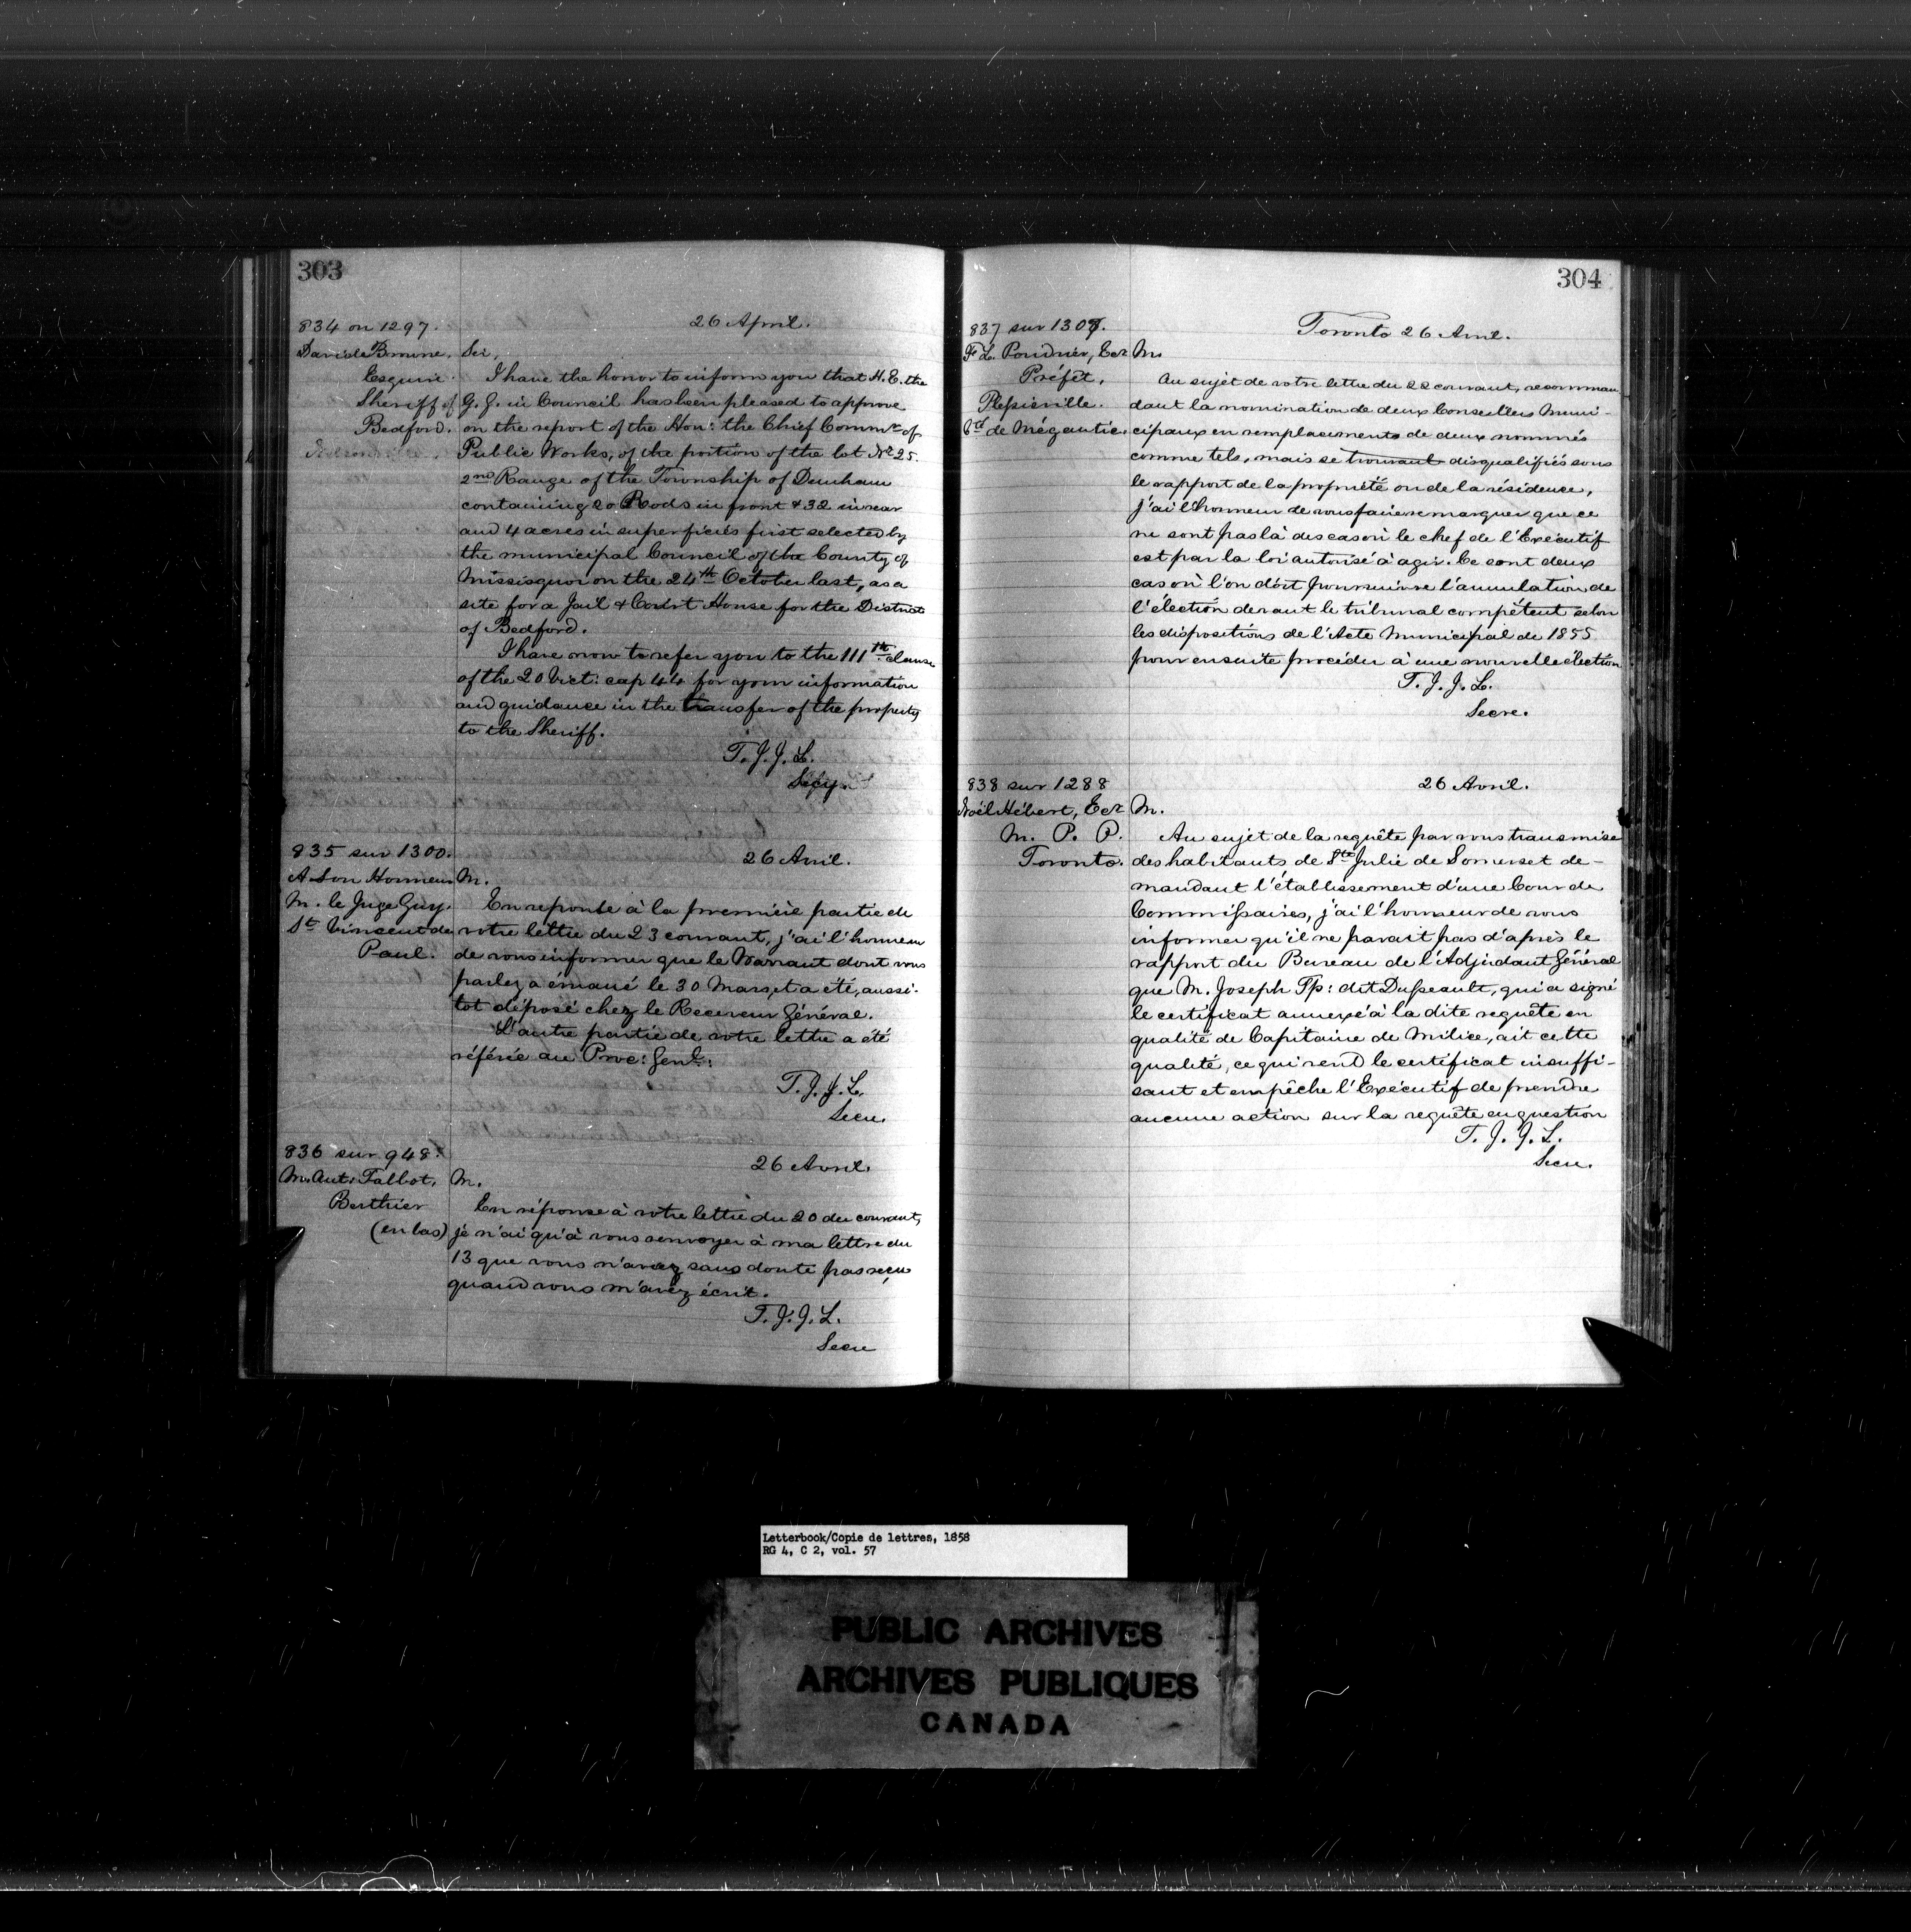 303
834 on 1297.
26 April.
Sir,
Esquire
I have the honor to inform you that H. E. the
Sheriff of
G. G. in Council has been pleased to approve
Bedford.
on the report of the Hon: the Chief Commr of
Public Works, of the portion of the lot No 25.
2nd Range of the Township of Dunham
containing 20 Rods in front & 32 in rear
and 4 acres in superficies first selected by
the municipal Council of the County of
Missisquoi on the 24th October last, as a
site for a Jail & Court House for the District
of Bedford.
I have now to refer you to the 111th clause
of the 20 Vict: cap 44 for your information
and guidance in the transfer of the property
to the Sheriff.
T. J. J. L.
Secy.
835 sur 1300.
26 Avril.
A Son Honneur
M.
M. le Juge Guy.
En reponse à la première partie de
St Vincent de
votre lettre du 23 courant, j'ai l'honneur
Paul.
de vous informer que le Warrant dont vous
parlez a émané le 30 Mars, et a été, aussi-
tot déposé chez le Receveur Général.
L'autre partie de votre lettre a été
référée au Proc: Genl:
T. J. J. L.
Secre.
836 sur 948.
26 Avril.
M. Ant. Talbot,
M.
Berthier
En réponse à votre lettre du 20 du courant,
(en bas)
je n'ai qu'à vous renvoyer à ma lettre du
13 que vous n'aviez sans doute pas reçu
quand vous m'avez écrit.
T. J. J. L.
Secre
304
837 sur 1307.
Toronto 26 Avril.
F. L. Poudrier, Ecr
M.
Préfêt,
Au sujet de votre lettre du 22 courant, recomman
Plessisville.
dant la nomination de deux Conseillers Muni-
Cté de Mégantic.
cipaux en remplacements de deux nommés
comme tels, mais se trouvant disqualifiés sous
le rapport de la propriété ou de la résidence,
j'ai l'honneur de vous faire remarquer que ce
ne sont pas là des cas où le chef de l'Exécutif
est par la loi autorisé à agir. Ce sont deux
cas où l'on doit poursuivre l'annulation de
l'élection devant le tribunal compétent selon
les dispositions de l'Acte Municipal de 1855
pour ensuite procéder à une nouvelle élection
T. J. J. L.
Secre.
838 sur 1288
26 Avril.
Noël Hébert, Ecr
M.
M. P. P.
Au sujet de la requête par vous transmise
Toronto.
des habitants de Ste Julie de Somerset de-
mandant l'établissement d'une Cour de
Commissaires, j'ai l'honneur de vous
informer qu'il ne parait pas d'après le
rapport du Bureau de l'Adjudant Général
que M. Joseph Tp: dit Dusseault, qui a signé
le certificat annexé à la dite requête en
qualité de Capitaine de Milice, ait cette
qualité, ce qui rend le certificat insuffi-
sant et empêche l'Exécutif de prendre
aucune action sur la requête en question
T. J. J. L.
Secre.
Letterbook/Copie de lettres, 1858
RG 4, C 2, vol. 57
PUBLIC ARCHIVES
ARCHIVES PUBLIQUES
CANADA